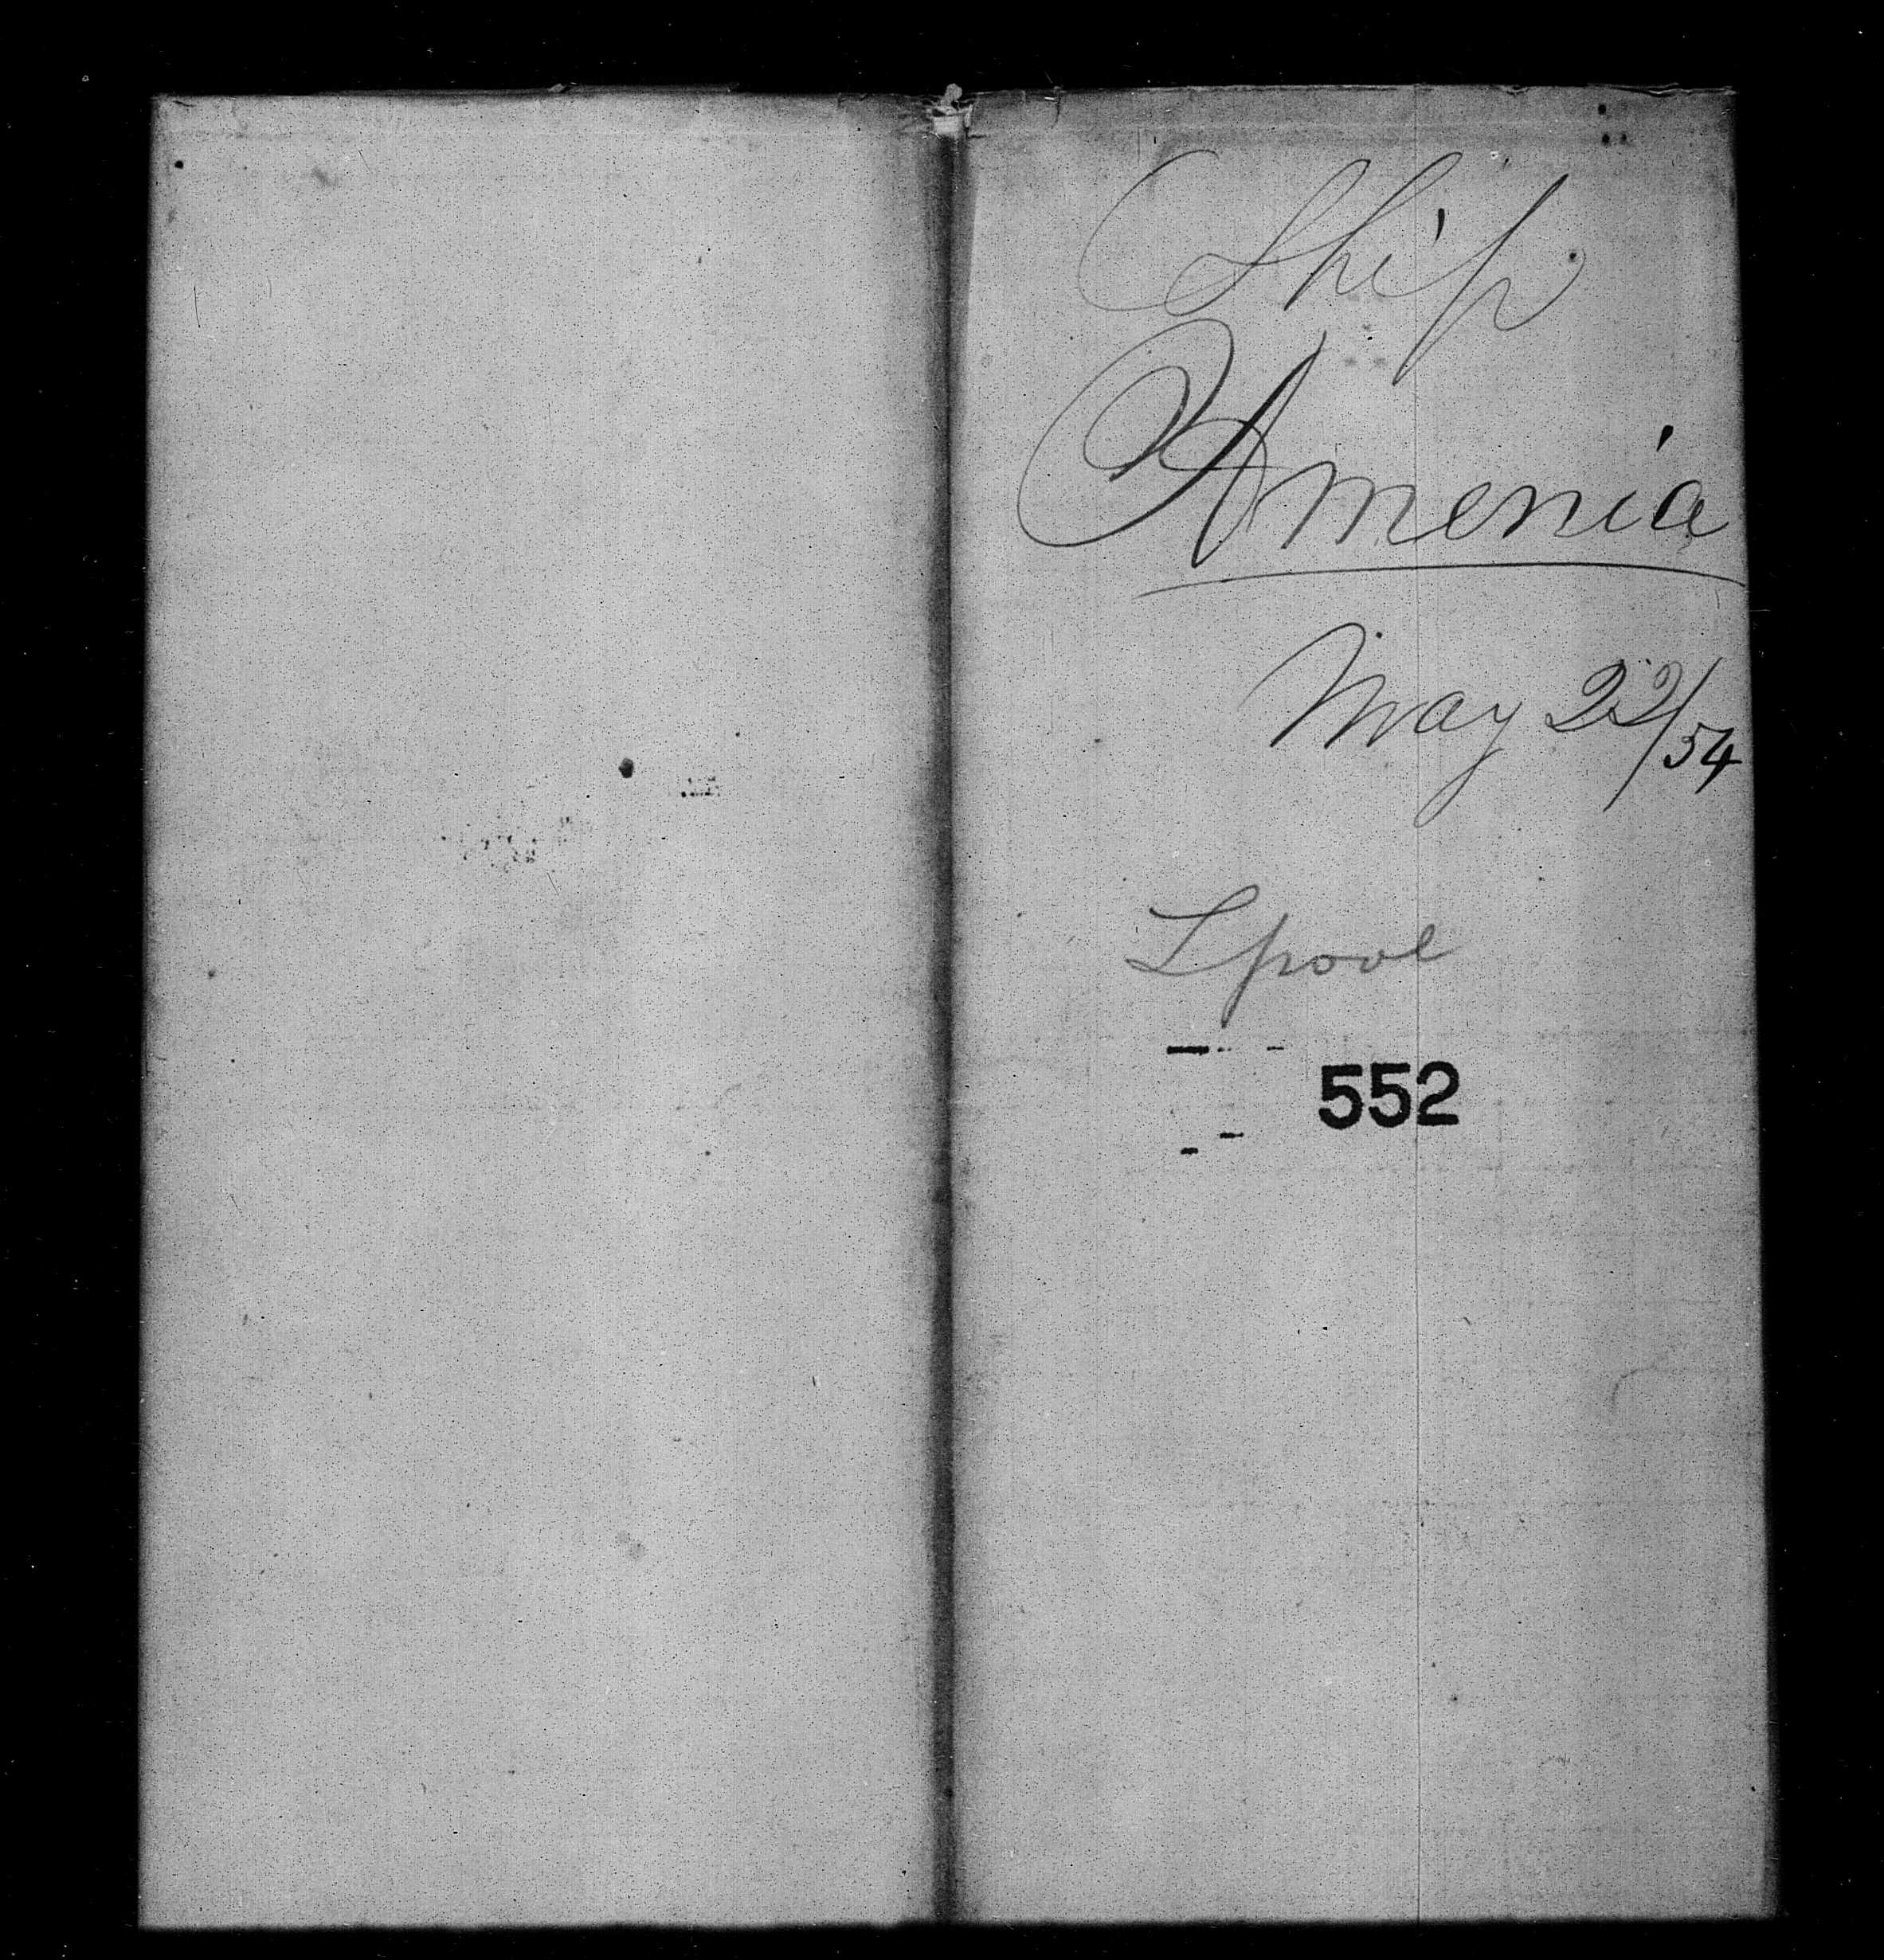 Ship
Amenia
May 22/54
Lpool
552